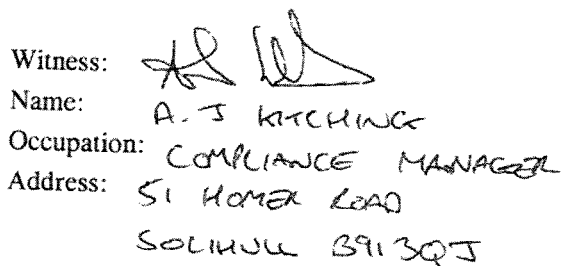 Witness:
Name: A. J KITCHING
Occupation: COMPLIANCE MANAGER
Address: 51 HOMER ROAD
SOLIHULL B91 3QJ